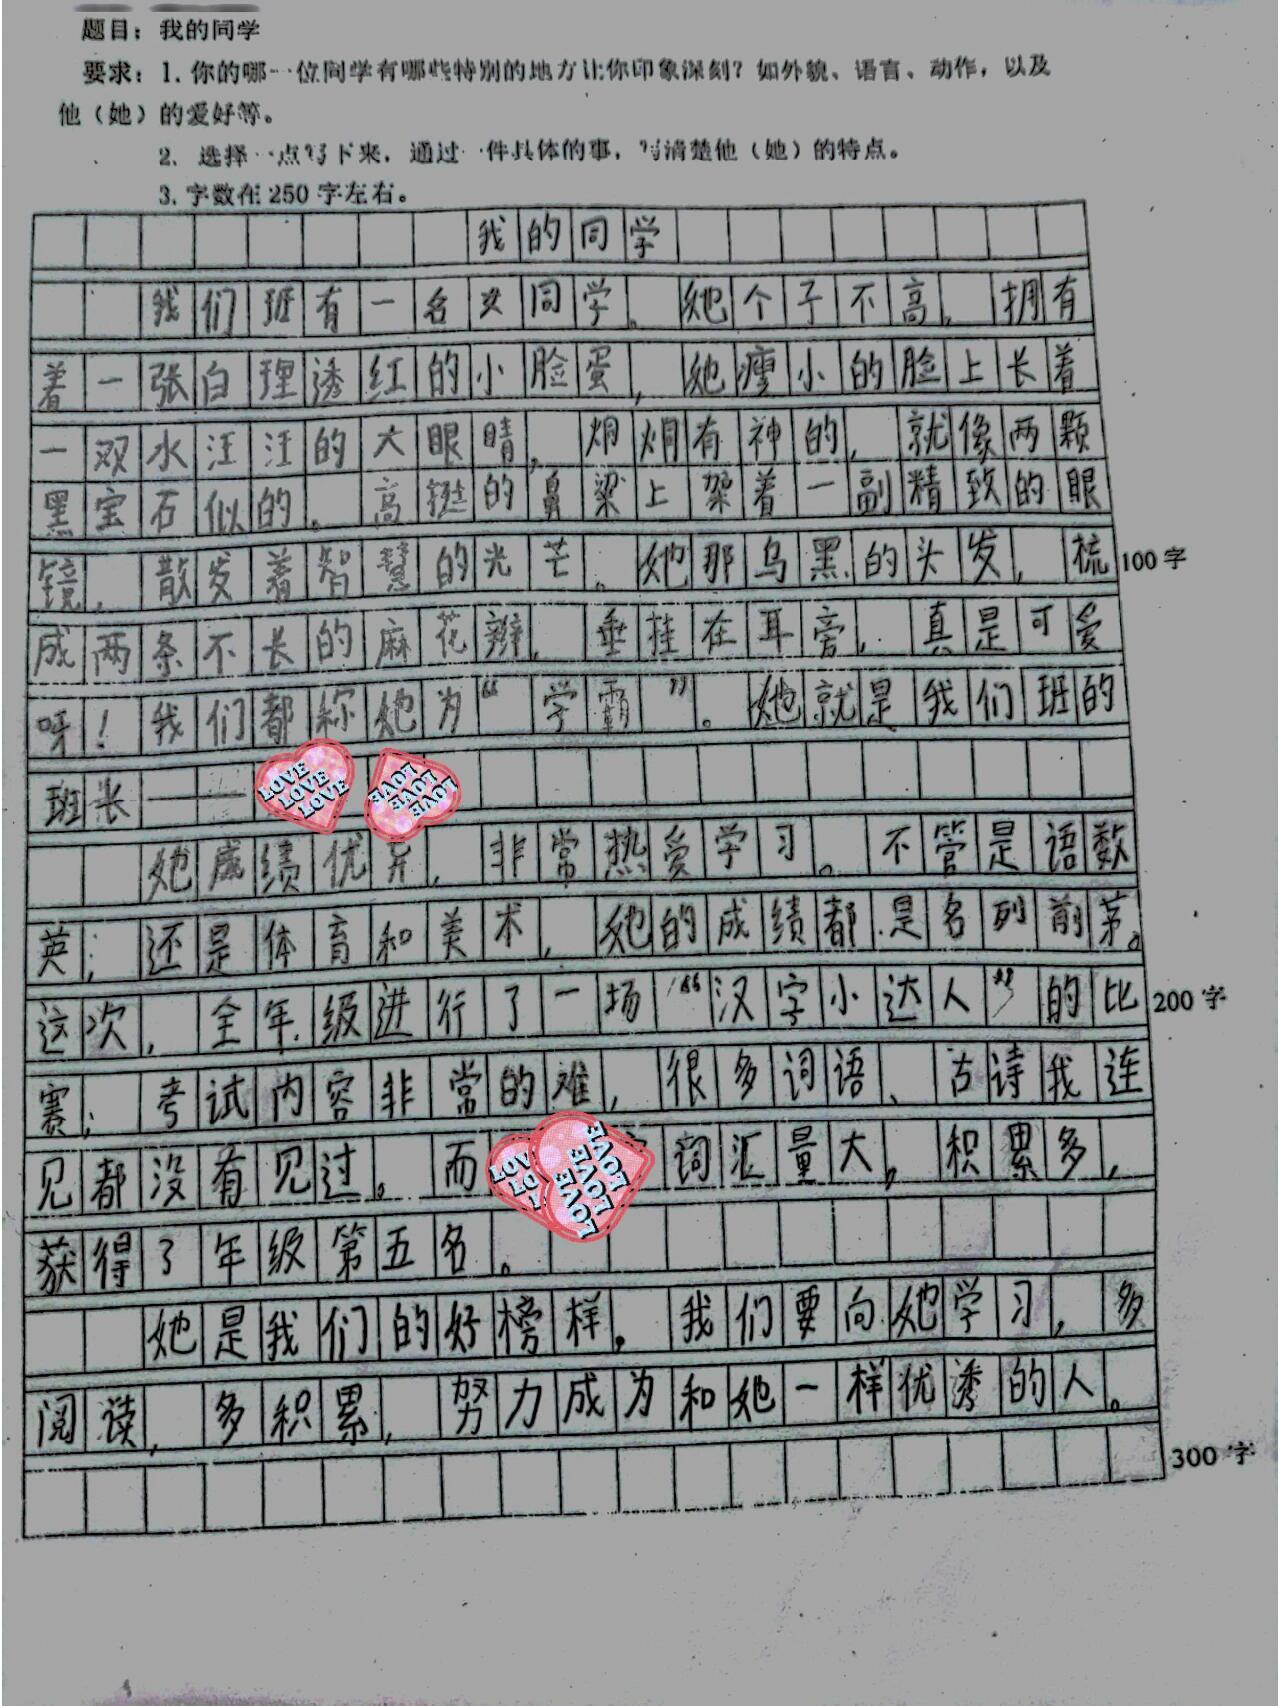 题目：我的同学
要求：1. 你的哪一位同学有哪些特别的地方让你印象深刻？如外貌、语言、动作，以及
他（她）的爱好等。
2. 选择一点写下来，通过一件具体的事，写清楚他（她）的特点。
3. 字数在250字左右。
我的同学
我们班有一名女同学。她个子不高，拥有
着一张白理透红的小脸蛋，她瘦小的脸上长着
一双水汪汪的大眼睛，炯炯有神的，就像两颗
黑宝石似的。高挺的鼻梁上架着一副精致的眼
镜，散发着智慧的光芒。她那乌黑的头发，梳
100字
成两条不长的麻花辫，垂挂在耳旁，真是可爱
呀！我们都称她为“学霸”。她就是我们班的
班长——
LOVE LOVE LOVE
LOVE LOVE LOVE
她成绩优异，非常热爱学习。不管是语数
英；还是体育和美术，她的成绩都是名列前茅。
这次，全年级进行了一场“汉字小达人”的比
200字
赛；考试内容非常的难，很多词语、古诗我连
见都没有见过。而 词汇量大，积累多，
LOVE LOVE LOVE
获得了年级第五名。
她是我们的好榜样。我们要向她学习，多
阅读，多积累，努力成为和她一样优透的人。
300字